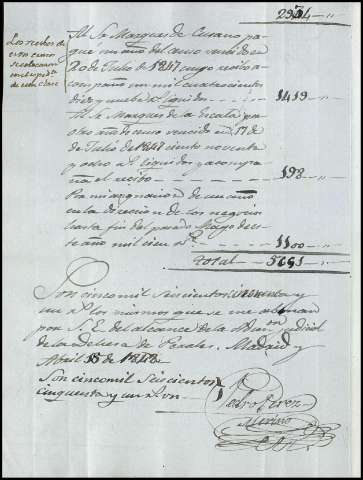 2934
Los recibos de
Al Sr Marques de Cusano pa-
gué un año del censo vencido en
20 de Julio de 1847 cuyo recibo a-
compaño un mil cuatrocientos
diez y nueve rs liquidos 1419
Al Sr Marques de la Escala por
otro año de censo vencido en 17 de
de Julio de 1847 ciento noventa
y ocho rs liquidos y acompa-
ña el recibo 198
Pr mi asignacion de un año
en la direccion de los negocios
hasta fin del pasado Mayo de es-
te año mil cien rs 1100
Total 5651
Son cinco mil seiscientos cincuenta y
un rs los mismos que se me abonan
por S. E. del alcance de la Admon judicial
de la dehesa de Perales. Madrid y
Abril 15 de 1848
Son cinco mil seiscientos
cincuenta y un rs von
Pedro Perez
Merino